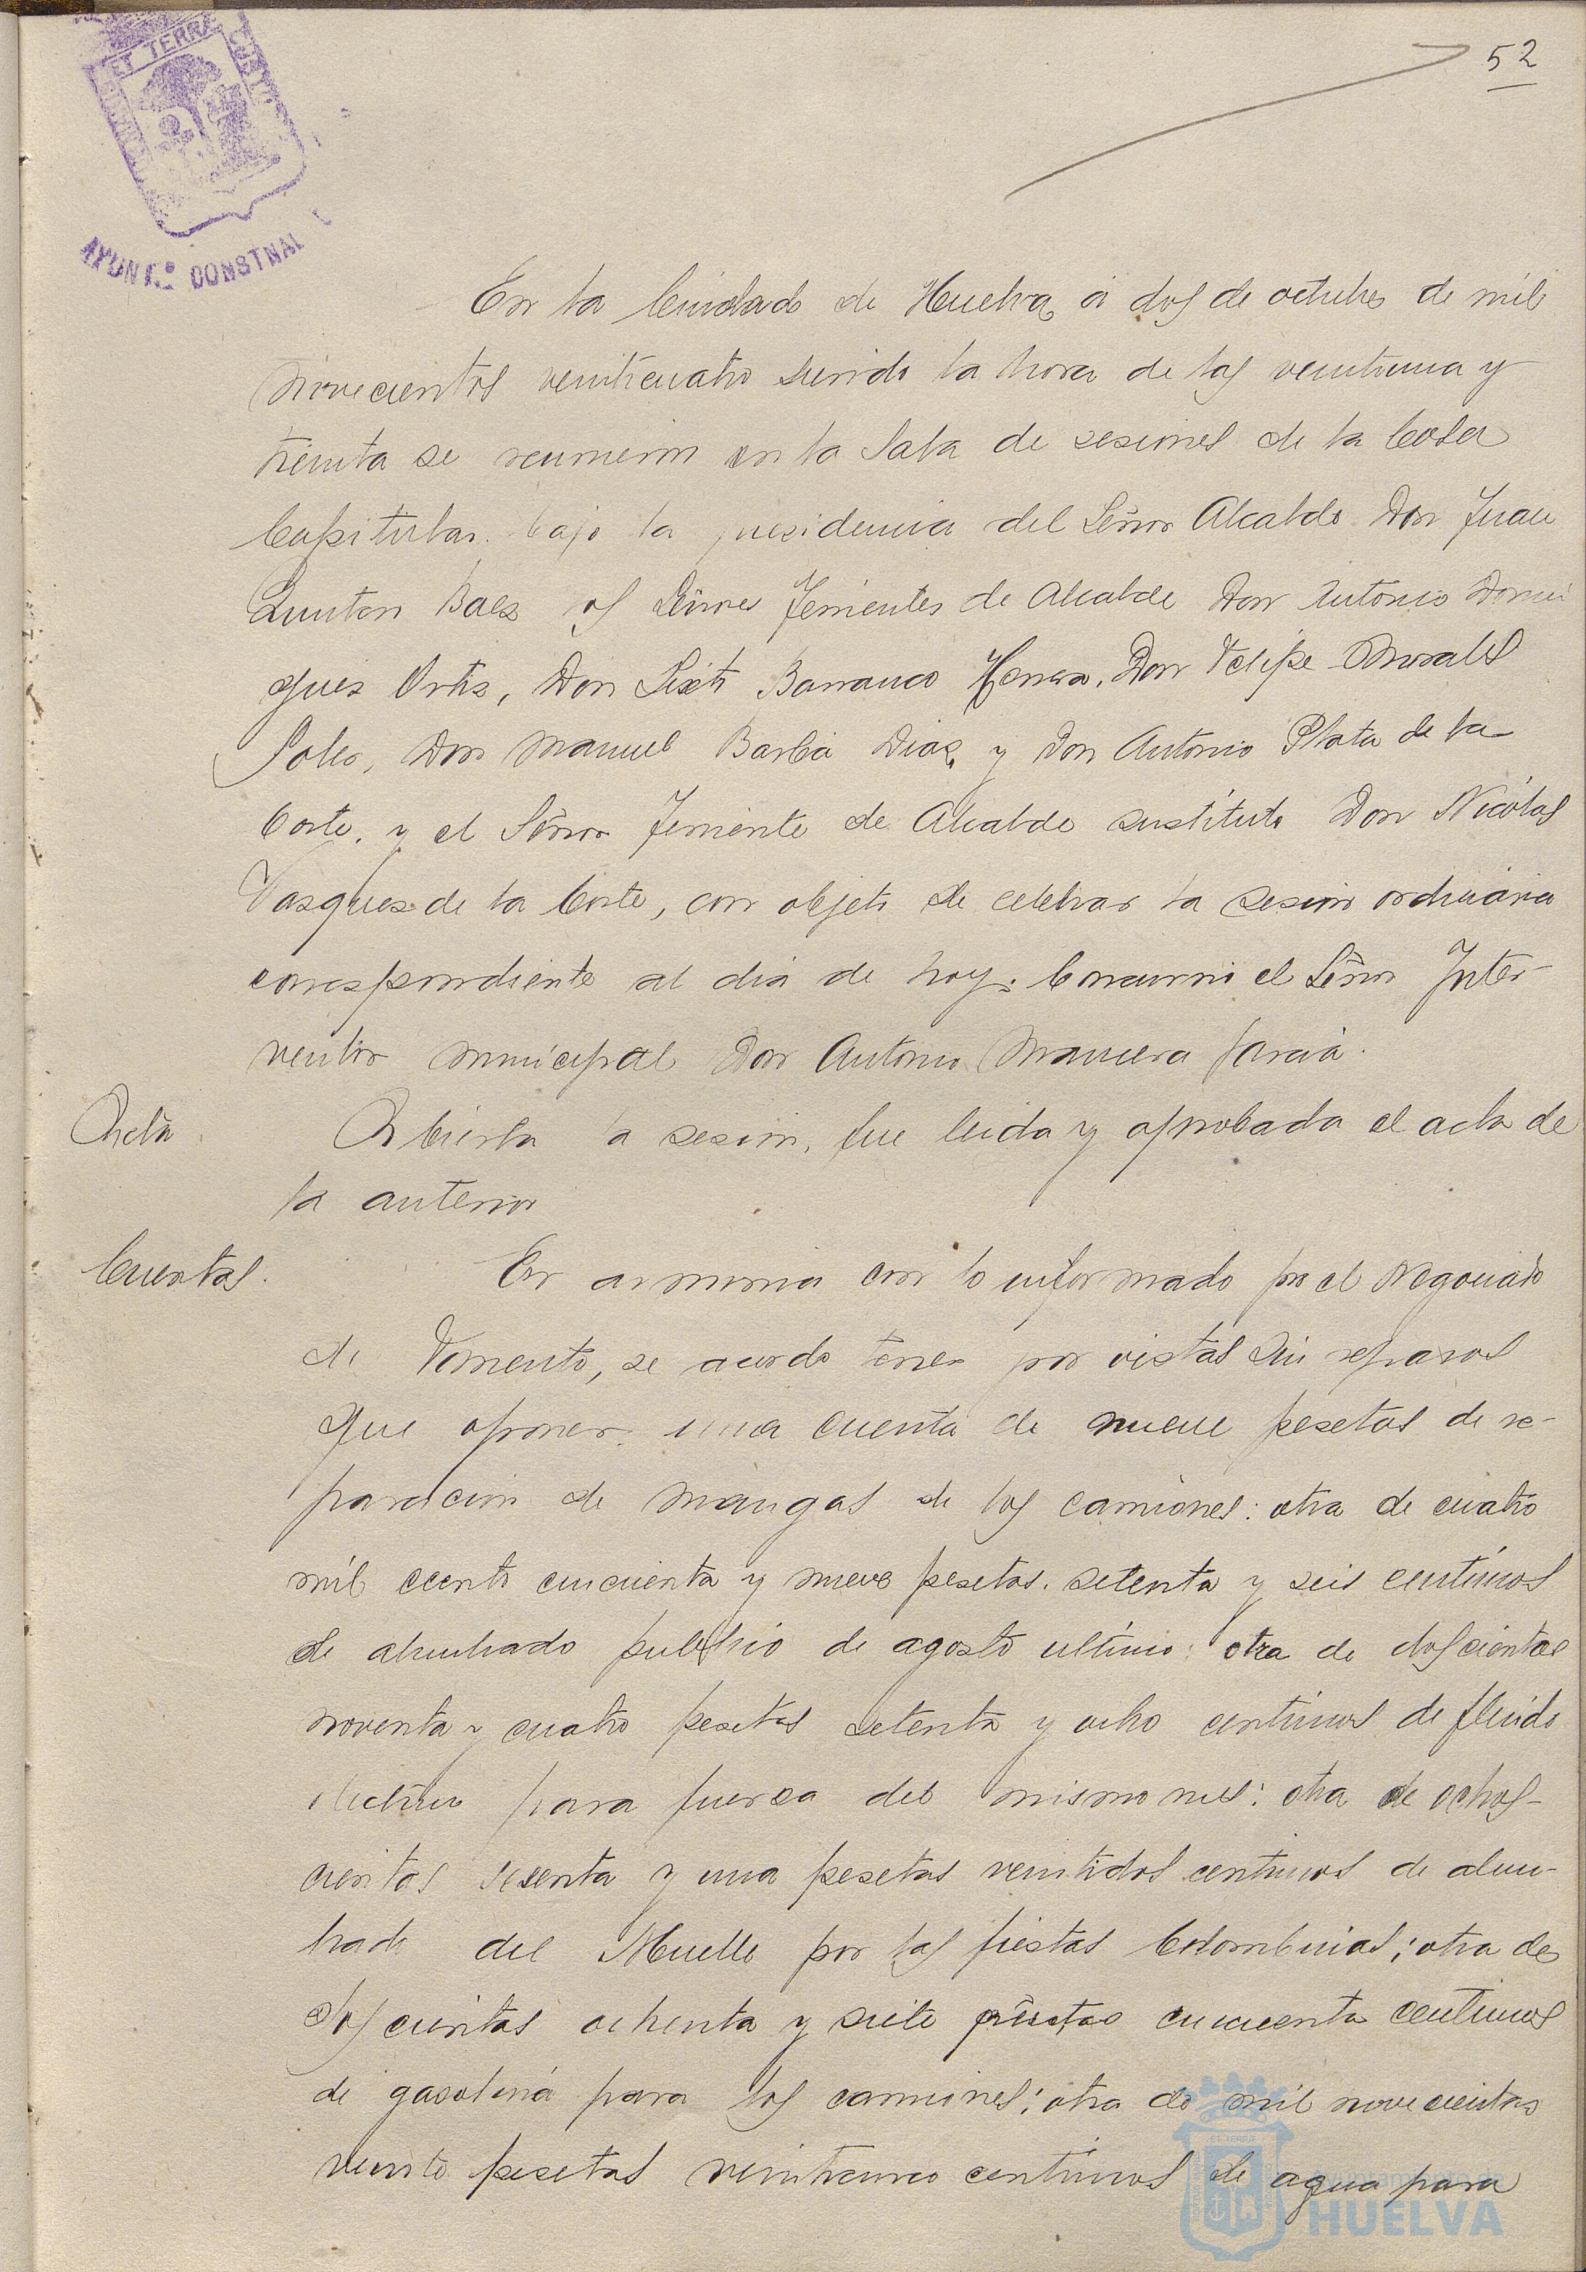 52
ET TERRA CUSTO
AYUNT.º CONSTNAL
En la Ciudad de Huelva á dos de octubre de mil
novecientos veinticuatro siendo la hora de las veintiuna y
treinta se reunieron en la Sala de sesiones de la Casa
Capitular bajo la presidencia del Señor Alcalde Don Juan
Quintero Baez los Señores Tenientes de Alcalde Don Antonio Domin
guez Ortiz, Don Sixto Barranco Herrera, Don Felipe Morales
Don Manuel Barba Diaz, y Don Antonio Plata de la
Corte, y el Señor Teniente de Alcalde sustituto Don Nicolas
Vazquez de la Corte, con objeto de celebrar la sesion ordinaria
correspondiente al dia de hoy. Concurrió el Señor Inter-
ventor municipal Don Antonio Mancera Garcia.
Acta. Abierta la sesion, fue leida y aprobada el acta de
la anterior
Cuentas. En armonia con lo informado por el Negociado
de Fomento, se acordo tener por vistas sin reparos
que oponer una cuenta de nueve pesetas de re-
paracion de mangas de los camiones: otra de cuatro
mil ciento cincuenta y nueve pesetas setenta y seis centimos
de alumbrado publico de agosto ultimo: otra de doscientas
noventa y cuatro pesetas setenta y ocho centimos de fluido
electrico para fuerza del mismo mes: otra de ochos-
cientas sesenta y una pesetas veintidos centimos de alum-
brado del Muelle por las fiestas Colombinas; otra de
doscientas ochenta y siete pesetas cincuenta centimos
de gasolina para los camiones; otra de mil novecientas
veinte pesetas veinticinco centimos de agua para
Ayuntamiento de
HUELVA